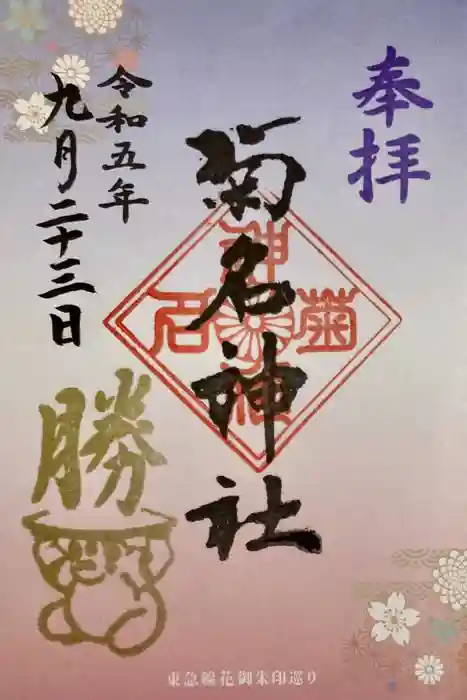 奉拝
菊名神社
神
菊
名
社
令和五年
九月二十三日
勝
東急線花御朱印巡り